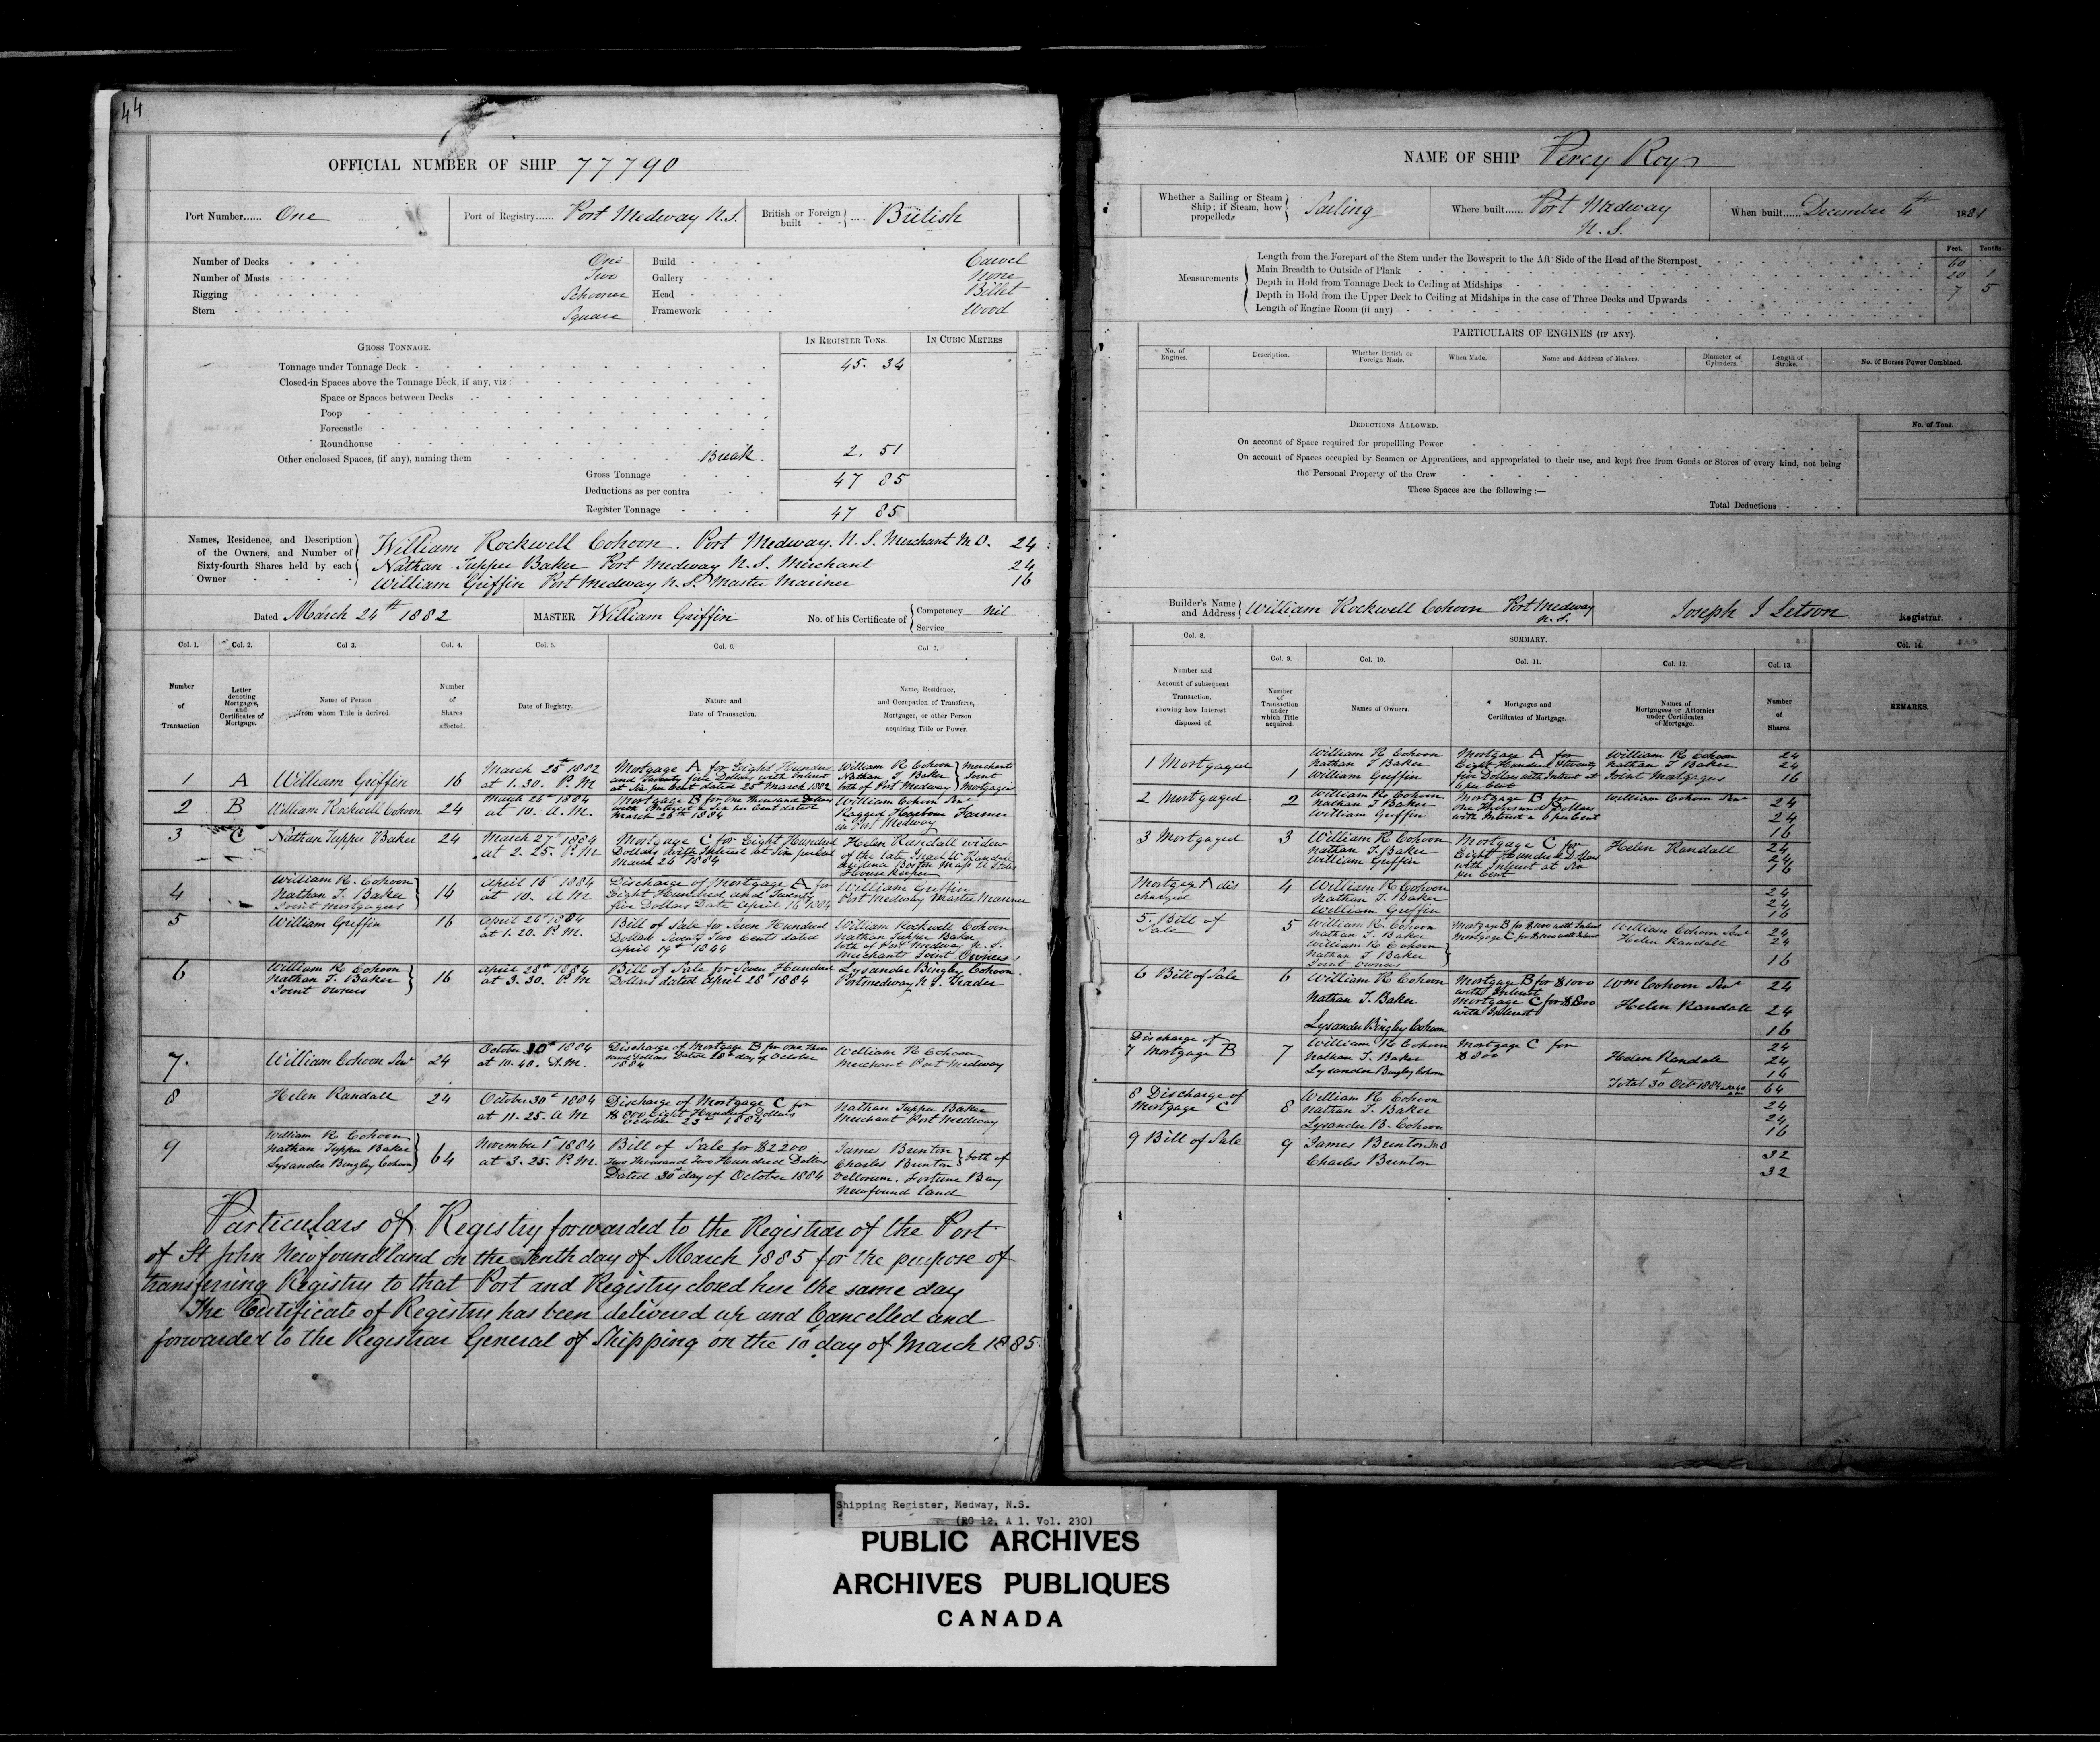 44
OFFICIAL NUMBER OF SHIP 77790
Port Number...... One
Port of Registry...... Port Medway N.S.
British or Foreign built .... British
Number of Decks One
Number of Masts Two
Rigging Schooner
Stern Square
Build Carvel
Gallery None
Head Billet
Framework Wood
GROSS TONNAGE.
IN REGISTER TONS.
IN CUBIC METRES
Tonnage under Tonnage Deck 45. 34
Closed-in Spaces above the Tonnage Deck, if any, viz:
Space or Spaces between Decks
Poop
Forecastle
Roundhouse
Other enclosed Spaces, (if any), naming them Break. 2. 51
Gross Tonnage 47 85
Deductions as per contra
Register Tonnage 47 85
Names, Residence, and Description of the Owners, and Number of Sixty-fourth Shares held by each Owner
William Rockwell Cohoon. Port Medway. N. S. Merchant M.O. 24
Nathan Tupper Baker Port Medway N. S. Merchant 24
William Griffin Port Medway N. S. Master Mariner 16
Dated March 24th 1882
MASTER William Griffin
No. of his Certificate of Competency nil
Service
Col. 1. Col. 2. Col 3. Col. 4. Col. 5. Col. 6. Col. 7.
Number of Transaction
Letter denoting Mortgages, and Certificates of Mortgage.
Name of Person from whom Title is derived.
Number of Shares affected.
Date of Registry.
Nature and Date of Transaction.
Name, Residence, and Occupation of Transferee, Mortgagee, or other Person acquiring Title or Power.
1 A William Griffin 16
March 25th 1882
at 1. 30. P. M
Mortgage A for Eight Hundred
and Twenty five Dollars with Interest
at Six per Cent dated 25th March 1882
William R Cohoon
Nathan T Baker
both of Port Medway
Merchants
Joint
Mortgagees
2 B William Rockwell Cohoon 24
March 26th 1884
at 10. A. M.
Mortgage B for One Thousand Dollars
with Interest a Six per Cent dated
March 26th 1884
William Cohoon Senr
Ragged Harbour Farmer
in Port Medway
3 C Nathan Tupper Baker 24
March 27th 1884
at 2. 25. P. M
Mortgage C for Eight Hundred
Dollars with Interest at Six per Cent
March 26th 1884
Helen Randall widow
of the late Israel W Randall
Boston Mass
House keeper
4
William R. Cohoon
Nathan T. Baker
Joint Mortgagees
16
April 16th 1884
at 10. A M
Discharge of Mortgage A for
Eight Hundred and Twenty
five Dollars Date April 16th 1884
William Griffin
Port Medway Master Mariner
5 William Griffin 16
April 26th 1884
at 1. 20. P. M.
Bill of Sale for Seven Hundred
Dollars Seventy Two Cents dated
April 19th 1884
William Rockwell Cohoon
Nathan Tupper Baker
both of Port Medway N. S.
Merchants Joint Owners
6
William R Cohoon
Nathan T. Baker
Joint Owners
16
April 28th 1884
at 3. 30. P. M
Bill of Sale for Seven Hundred
Dollars dated April 28th 1884
Lysander Bingley Cohoon.
Port Medway N. S. Trader
7. William Cohoon Senr 24
October 30th 1884
at 10. 40. A. M.
Discharge of Mortgage B for One Thou
sand Dollars Dated 28th day of October
1884
William R Cohoon
Merchant Port Medway
8 Helen Randall 24
October 30th 1884
at 11. 25. A M
Discharge of Mortgage C for
$800 Eight Hundred Dollars
October 23rd 1884
Nathan Tupper Baker
Merchant Port Medway
9
William R Cohoon
Nathan Tupper Baker
Lysander Bingley Cohoon
64
November 1st 1884
at 3. 25. P. M.
Bill of Sale for $2200
Two Thousand Two Hundred Dollars
Dated 30th day of October 1884
James Brinton
Charles Brinton
both of
Bellorum. Fortune Bay
Newfoundland
Particulars of Registry forwarded to the Registrar of the Port
of St John Newfoundland on the Tenth day of March 1885 for the purpose of
transferring Registry to that Port and Registry closed here the same day
The Certificate of Registry has been delivered up and Cancelled and
forwarded to the Registrar General of Shipping on the 10th day of March 1885.
NAME OF SHIP Percy Roy
Whether a Sailing or Steam Ship; if Steam, how propelled. Sailing
Where built...... Port Medway N. S.
When built...... December 4th 1881
Measurements
Feet. Tenths
Length from the Forepart of the Stem under the Bowsprit to the Aft Side of the Head of the Sternpost 60
Main Breadth to Outside of Plank 20 1
Depth in Hold from Tonnage Deck to Ceiling at Midships 7 5
Depth in Hold from the Upper Deck to Ceiling at Midships in the case of Three Decks and Upwards
Length of Engine Room (if any)
PARTICULARS OF ENGINES (IF ANY).
No. of Engines.
Description.
Whether British or Foreign Made.
When Made.
Name and Address of Makers.
Diameter of Cylinders.
Length of Stroke.
No. of Horses Power Combined.
DEDUCTIONS ALLOWED.
No. of Tons.
On account of Space required for propellling Power
On account of Spaces occupied by Seamen or Apprentices, and appropriated to their use, and kept free from Goods or Stores of every kind, not being
the Personal Property of the Crew
These Spaces are the following :—
Total Deductions
Builder's Name and Address William Rockwell Cohoon Port Medway N. S.
Joseph S Letson Registrar.
Col. 8.
SUMMARY.
Col. 9. Col. 10. Col. 11. Col. 12. Col. 13. Col. 14.
Number and Account of subsequent Transaction, showing how Interest disposed of.
Number of Transaction under which Title acquired.
Names of Owners.
Mortgages and Certificates of Mortgage.
Names of Mortgagees or Attornies under Certificates of Mortgage.
Number of Shares.
REMARKS.
1 Mortgaged 1
William R Cohoon
Nathan T Baker
William Griffin
Mortgage A for
Eight Hundred & twenty
five Dollars with Interest at
6 per Cent
William R Cohoon
Nathan T Baker
Joint Mortgagees
24
24
16
2 Mortgaged 2
William R Cohoon
Nathan T Baker
William Griffin
Mortgage B for
One Thousand Dollars
with Interest a 6 per Cent
William Cohoon Senr
24
24
16
3 Mortgaged 3
William R Cohoon
Nathan T. Baker
William Griffin
Mortgage C for
Eight Hundred Dollars
with Interest at Six
per Cent
Helen Randall
24
24
16
Mortgage A dis
charged
4
William R Cohoon
Nathan T. Baker
William Griffin
24
24
16
5. Bill of
Sale
5
William R. Cohoon
Nathan T. Baker
William R Cohoon
Nathan T Baker
Joint Owners
Mortgage B for $1000 with Interest
Mortgage C for $800 with Interest
William Cohoon Senr
Helen Randall
24
24
16
6 Bill of Sale 6
William R Cohoon
Nathan T. Baker
Lysander Bingley Cohoon
Mortgage B for $1000
with Interest
Mortgage C for $800
with Interest
Wm Cohoon Senr
Helen Randall
24
24
16
Discharge of
7 Mortgage B
7
William R Cohoon
Nathan T. Baker
Lysander Bingley Cohoon
Mortgage C for
$800
Helen Randall
24
24
16
Total 30 Oct 1884 64
8 Discharge of
Mortgage C
8
William R Cohoon
Nathan T. Baker
Lysander B. Cohoon
24
24
16
9 Bill of Sale 9
James Brinton M.O
Charles Brinton
32
32
Shipping Register, Medway, N.S.
(RG 12, A 1, Vol. 230)
PUBLIC ARCHIVES
ARCHIVES PUBLIQUES
CANADA